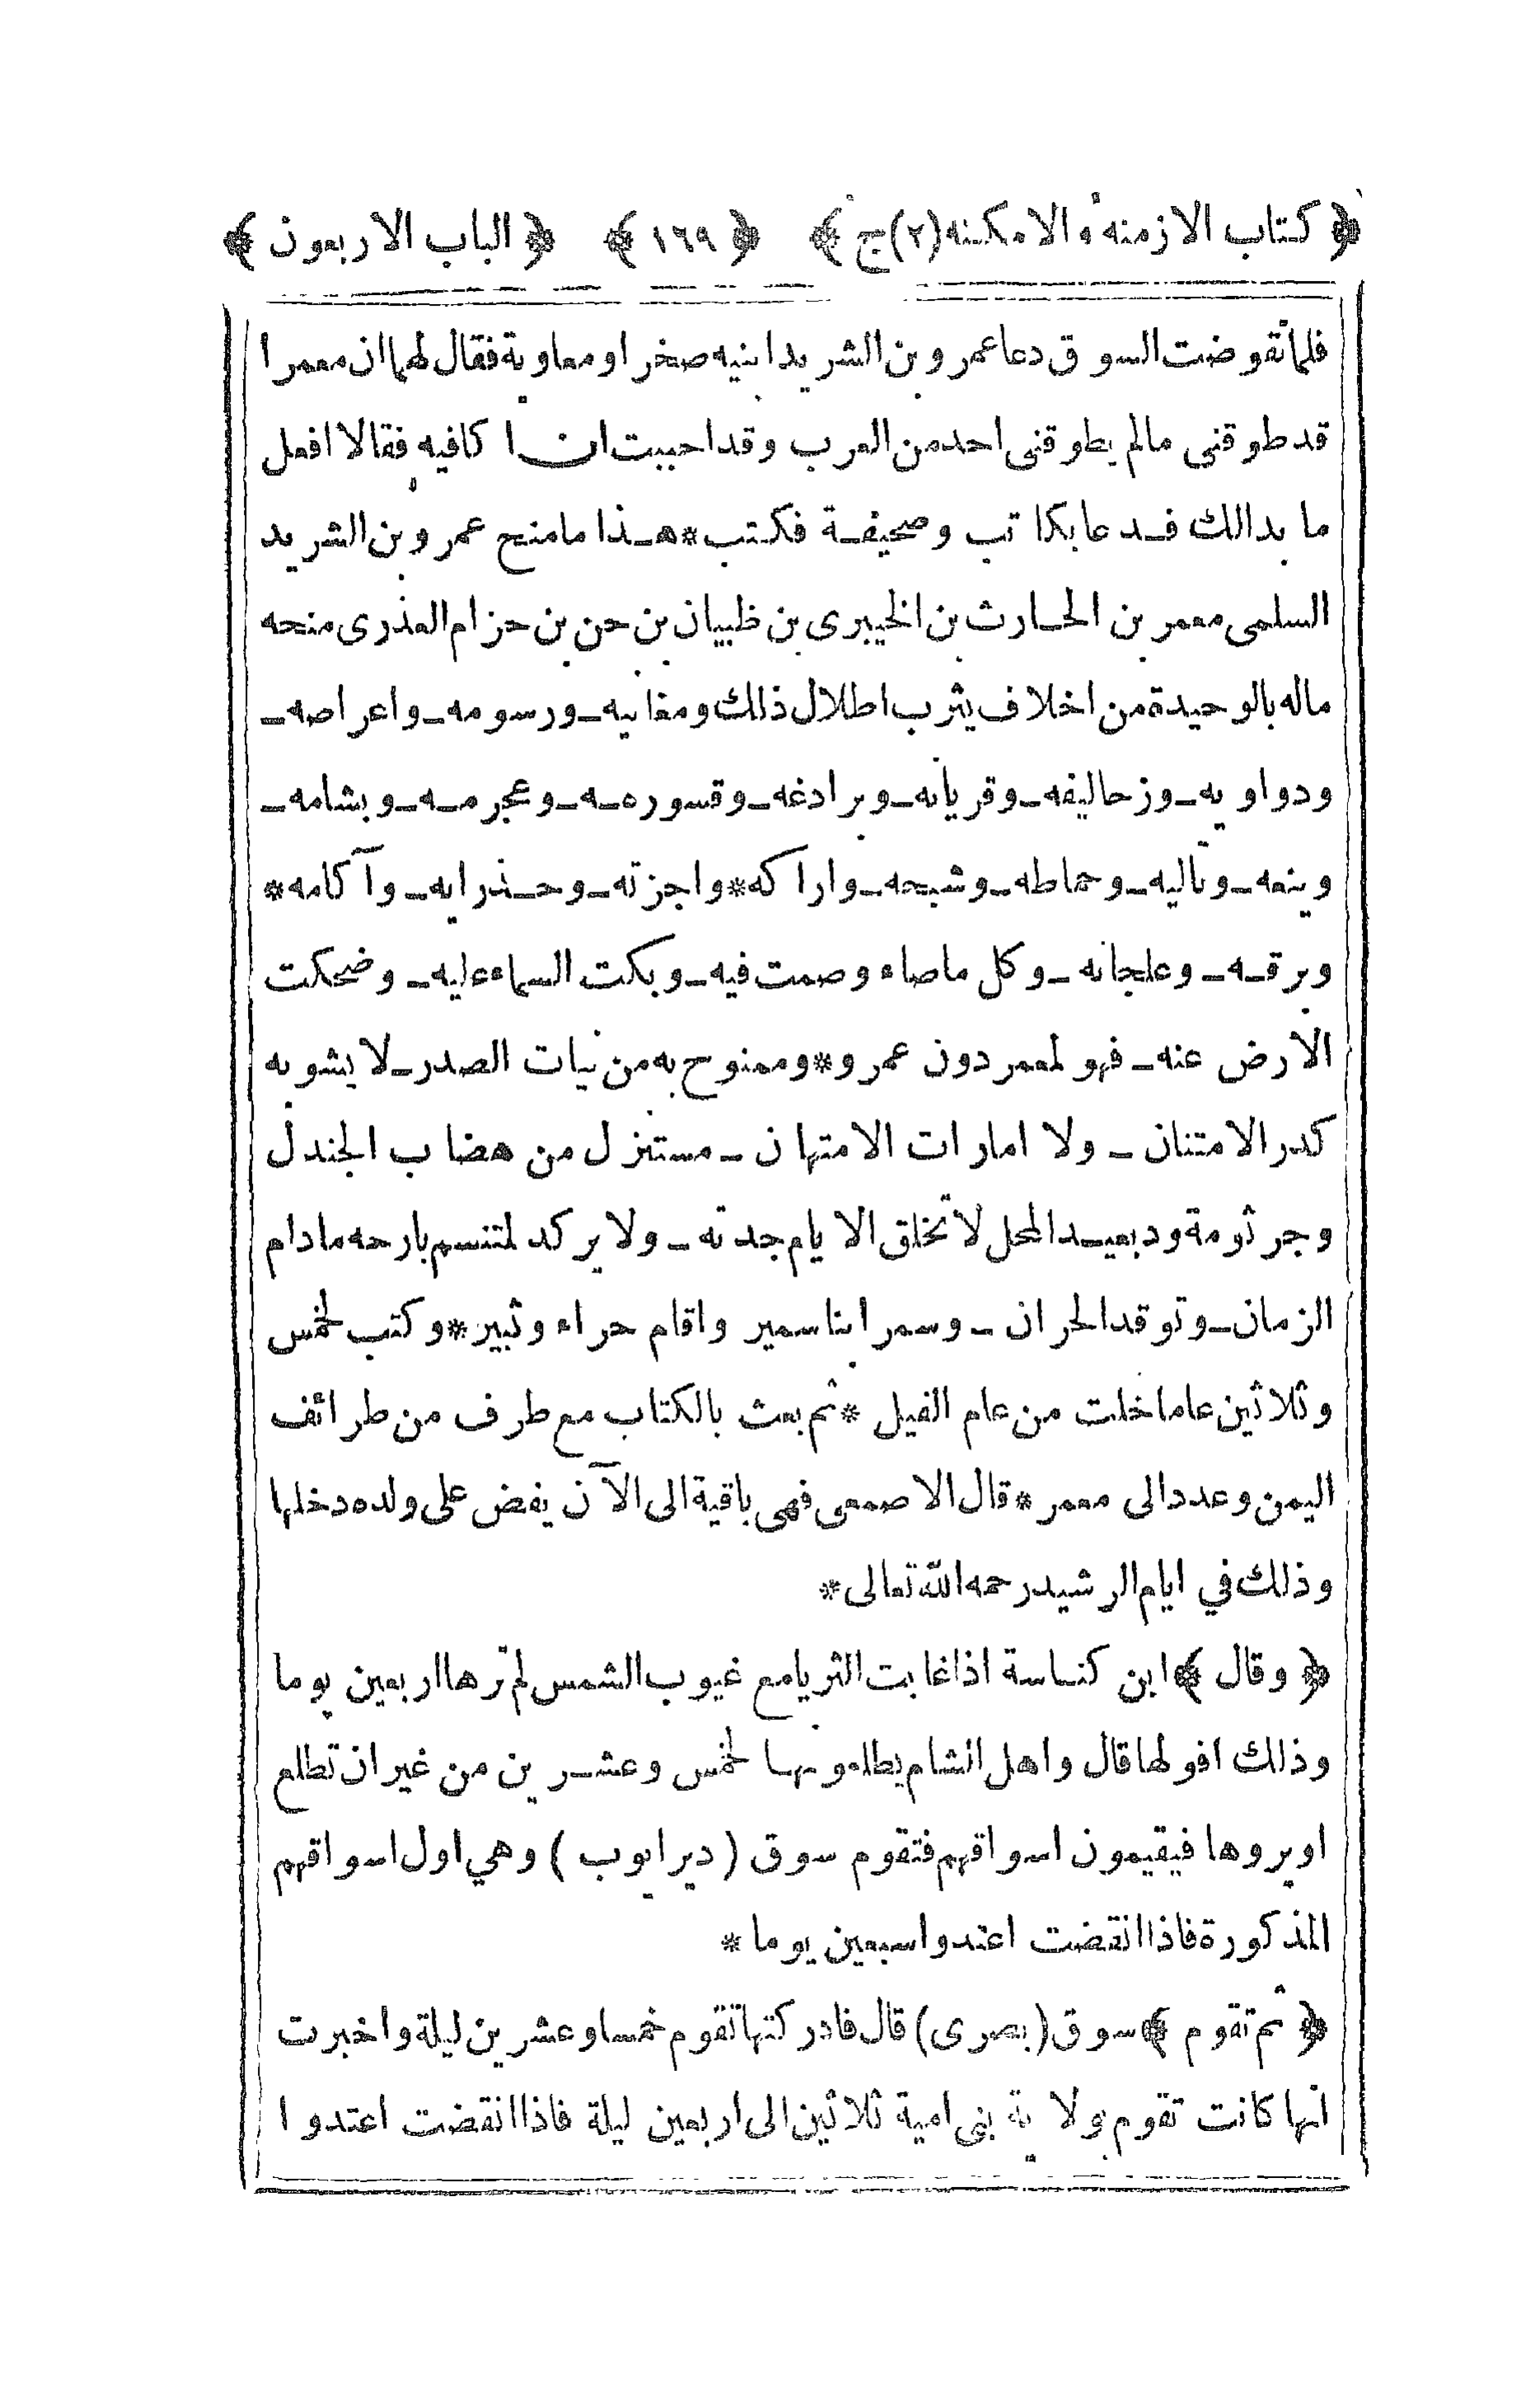 ﴿ كتاب الازمنه والامكنه (٢) ج ﴾ ﴿ ١٦٩ ﴾ ﴿ الباب الاربعون ﴾
فلما تقوضت السوق دعا عمرو بن الشريد ابنيه صخرا ومعاوية فقال لهما ان معمرا
قد طوقني مالم يطوقني احد من العرب وقد احببت ان اكافيه فقالا افعل
ما بدالك فدعا بكاتب وصحيفة فكتب * هذا ما منح عمرو بن الشريد
السلمى معمر بن الحارث بن الخيبرى بن ظبيان بن حن بن حزام العذرى منحه
ماله بالوحيدة من اخلاف يثرب اطلال ذلك ومغانيه ـ ورسومه ـ واعراصه ـ
ودواويه ـ وزحاليفه ـ وقريانه ـ وبرادغه ـ وقسوره ـه ـ وعجرمه ـ وبشامه ـ
وينعه ـ وتاليه ـ وحماطه ـ وشبحه ـ واراكه * واجزته ـ وحذرايه ـ وآكامه *
وبرقه ـ وعلجانه ـ وكل ماصاء وصمت فيه ـ وبكت السماء عليه ـ وضحكت
الارض عنه ـ فهو لمعمر دون عمرو * وممنوح به من نيات الصدر ـ لا يشوبه
كدر الامتنان ـ ولا امارات الامتهان ـ مستنزل من هضاب الجندل
وجرثومة ود بعيد المحل لا تخلق الايام جدته ـ ولا يركد لمتنسم بارحه مادام
الزمان ـ وتوقد الحران ـ وسمر ابنا سمير واقام حراء وثبير * وكتب لخمس
وثلاثين عاما خلت من عام الفيل * ثم بعث بالكتاب مع طرف من طرائف
اليمن وعدد الى معمر * قال الاصمعى فهى باقية الى الآن يفض على ولده دخلها
وذلك في ايام الرشيد رحمه الله تعالى *
﴿ وقال ﴾ ابن كناسة اذا غابت الثريا مع غيوب الشمس لم ترها اربعين يوما
وذلك افولها قال واهل الشام يطلعونها لخمس وعشرين من غير ان تطلع
اويروها فيقيمون اسواقهم فتقوم سوق ( دير ايوب ) وهي اول اسواقهم
المذكورة فاذا انقضت اعتدوا سبعين يوما *
﴿ ثم تقوم ﴾ سوق (بصرى) قال فادركتها تقوم خمسا وعشرين ليلة واخبرت
انها كانت تقوم بولاية بنى امية ثلاثين الى اربعين ليلة فاذا انقضت اعتدوا